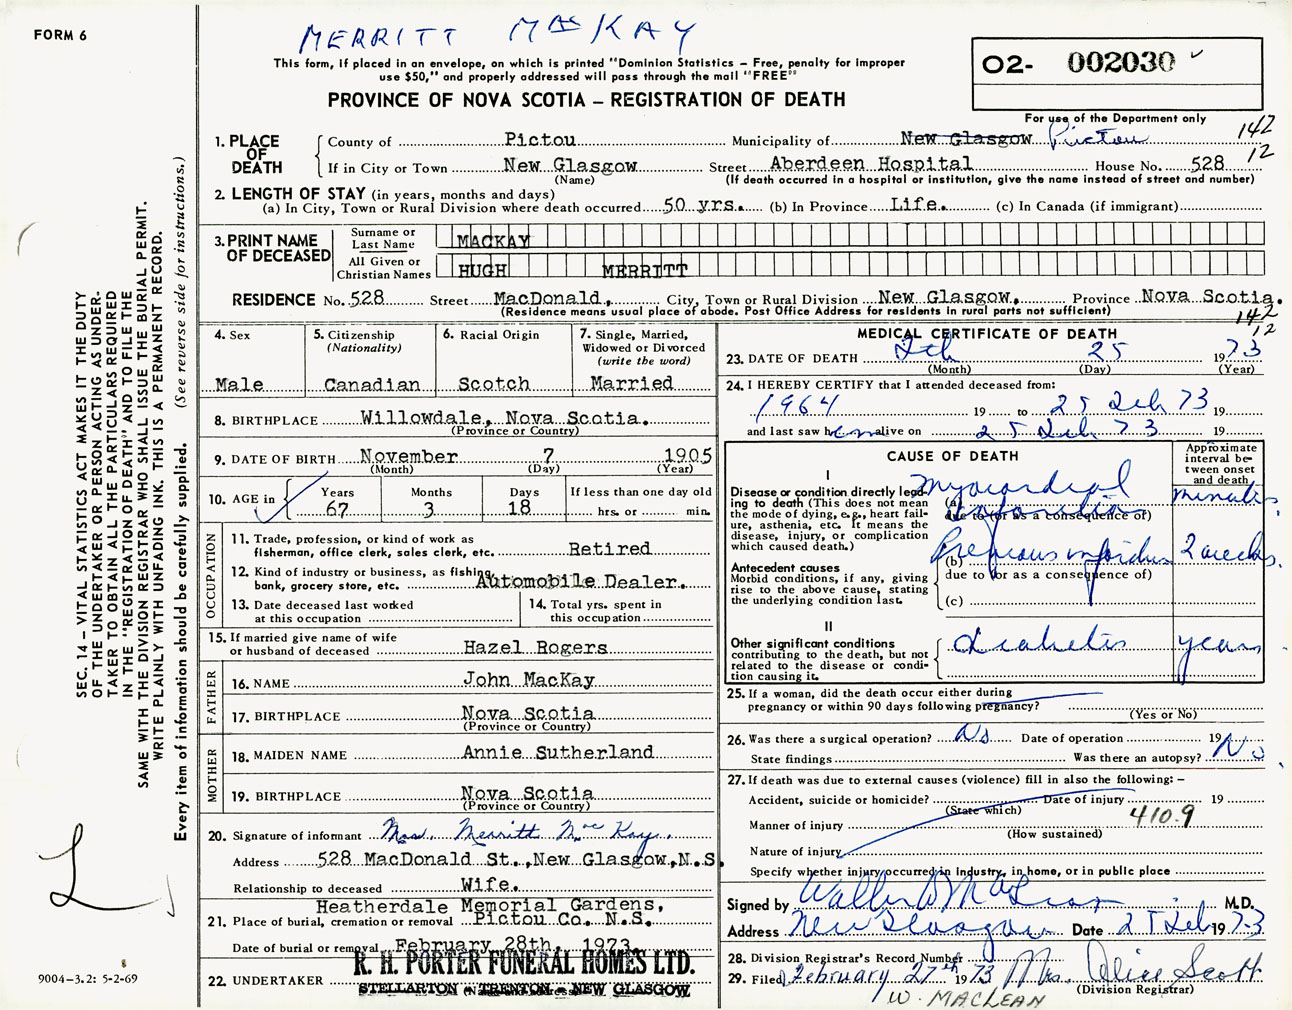 FORM 6
MERRITT MacKAY
This form, if placed in an envelope, on which is printed "Dominion Statistics – Free, penalty for improper
use $50," and properly addressed will pass through the mail "FREE"
PROVINCE OF NOVA SCOTIA – REGISTRATION OF DEATH
02- 002030
For use of the Department only
142
12
1. PLACE OF DEATH
County of Pictou Municipality of New Glasgow Pictou
If in City or Town New Glasgow Street Aberdeen Hospital House No. 528
(Name) (If death occurred in a hospital or institution, give the name instead of street and number)
2. LENGTH OF STAY (in years, months and days)
(a) In City, Town or Rural Division where death occurred 50 yrs. (b) In Province Life. (c) In Canada (if immigrant)
3. PRINT NAME OF DECEASED
Surname or Last Name MACKAY
All Given or Christian Names HUGH MERRITT
RESIDENCE No. 528 Street MacDonald, City, Town or Rural Division New Glasgow, Province Nova Scotia.
(Residence means usual place of abode. Post Office Address for residents in rural parts not sufficient)
142
12
4. Sex
Male
5. Citizenship
(Nationality)
Canadian
6. Racial Origin
Scotch
7. Single, Married,
Widowed or Divorced
(write the word)
Married
8. BIRTHPLACE Willowdale, Nova Scotia.
(Province or Country)
9. DATE OF BIRTH November 7 1905
(Month) (Day) (Year)
10. AGE in Years Months Days If less than one day old
67 3 18 hrs. or min.
OCCUPATION
11. Trade, profession, or kind of work as
fisherman, office clerk, sales clerk, etc. Retired
12. Kind of industry or business, as fishing,
bank, grocery store, etc. Automobile Dealer.
13. Date deceased last worked
at this occupation
14. Total yrs. spent in
this occupation
15. If married give name of wife
or husband of deceased Hazel Rogers
FATHER
16. NAME John MacKay
17. BIRTHPLACE Nova Scotia
(Province or Country)
MOTHER
18. MAIDEN NAME Annie Sutherland
19. BIRTHPLACE Nova Scotia
(Province or Country)
20. Signature of informant Mrs. Merritt MacKay.
Address 528 MacDonald St., New Glasgow, N.S.
Relationship to deceased Wife.
Heatherdale Memorial Gardens,
21. Place of burial, cremation or removal Pictou Co. N.S.
Date of burial or removal February 28th, 1973
22. UNDERTAKER R. H. PORTER FUNERAL HOMES LTD.
STELLARTON - TRENTON - NEW GLASGOW
MEDICAL CERTIFICATE OF DEATH
23. DATE OF DEATH Feb 25 1973
(Month) (Day) (Year)
24. I HEREBY CERTIFY that I attended deceased from:
1964 19 to 25 Feb 73 19
and last saw him alive on 25 Feb 73 19
CAUSE OF DEATH
Approximate
interval be-
tween onset
and death
I
Disease or condition directly lead-
ing to death (This does not mean
the mode of dying, e.g., heart fail-
ure, asthenia, etc. It means the
disease, injury, or complication
which caused death.)
(a) Myocardial Infarction minutes
due to (or as a consequence of)
Antecedent causes
Morbid conditions, if any, giving
rise to the above cause, stating
the underlying condition last.
(b) Previous infarction 2 weeks.
due to (or as a consequence of)
(c)
II
Other significant conditions
contributing to the death, but not
related to the disease or condi-
tion causing it.
Diabetes years
25. If a woman, did the death occur either during
pregnancy or within 90 days following pregnancy?
(Yes or No)
26. Was there a surgical operation? No Date of operation 19
State findings Was there an autopsy? No
27. If death was due to external causes (violence) fill in also the following: –
Accident, suicide or homicide? Date of injury 19
(State which)
Manner of injury 410.9
(How sustained)
Nature of injury
Specify whether injury occurred in industry, in home, or in public place
Signed by Walter D MacLean M.D.
Address New Glasgow Date 25 Feb 1973
28. Division Registrar's Record Number
29. Filed February 27th 1973 Mrs. Alice Scott
(Division Registrar)
W. MACLEAN
SEC. 14 – VITAL STATISTICS ACT MAKES IT THE DUTY
OF THE UNDERTAKER OR PERSON ACTING AS UNDER-
TAKER TO OBTAIN ALL THE PARTICULARS REQUIRED
IN THE "REGISTRATION OF DEATH" AND TO FILE THE
SAME WITH THE DIVISION REGISTRAR WHO SHALL ISSUE THE BURIAL PERMIT.
WRITE PLAINLY WITH UNFADING INK. THIS IS A PERMANENT RECORD.
Every item of information should be carefully supplied. (See reverse side for instructions.)
L
9004-3.2: 5-2-69